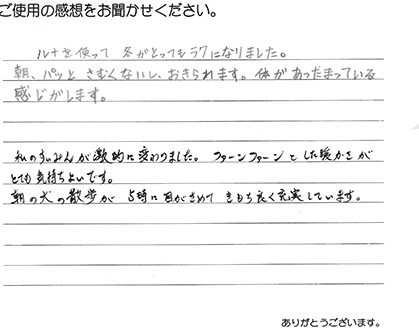 ご使用の感想をお聞かせください。
ルナを使って 冬がとってもラクになりました。
朝、パッと さむくないし、おきられます。体があったまっている
感じがします。
私のすいみんが激的に変わりました。ファーンファーンとした暖かさが
とても気持ちよいです。
朝の犬の散歩が 5時に目がさめて きもち良く充実しています。
ありがとうございます。